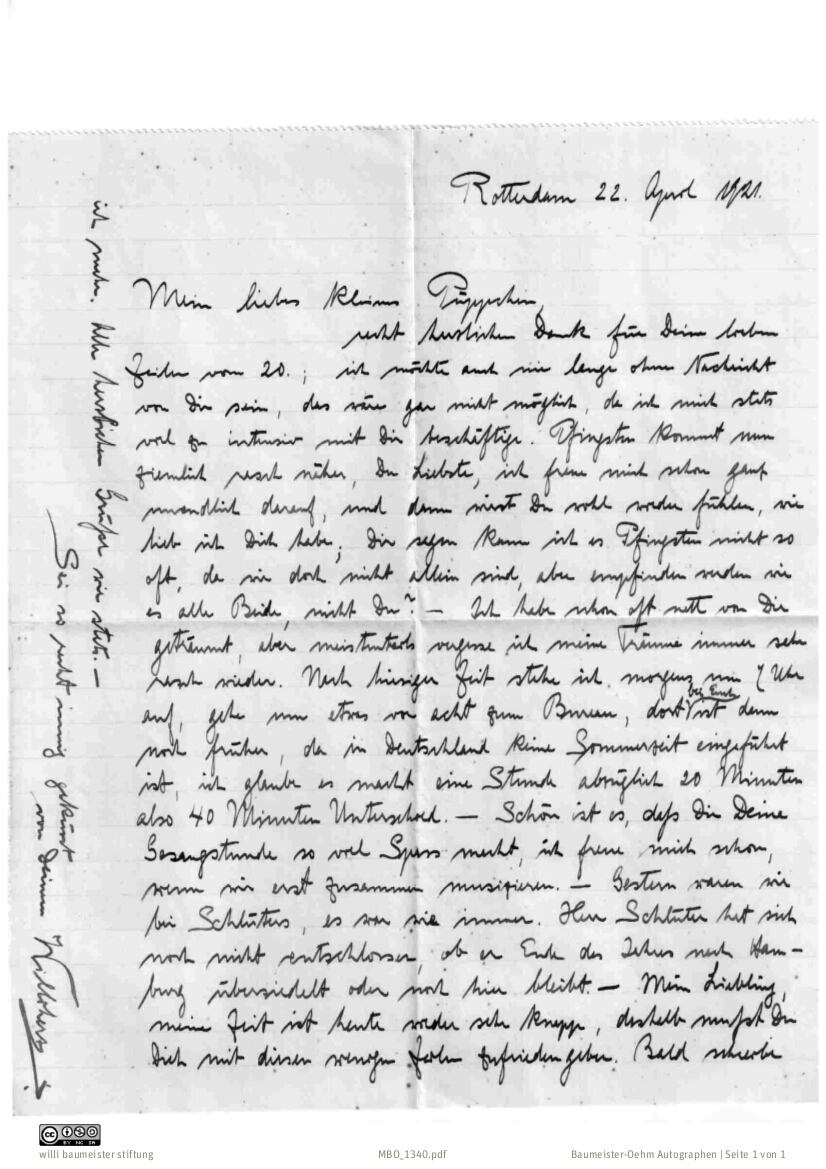 Rotterdam 22. April 1921.
Mein liebes kleines Püppchen,
recht herzlichen Dank für Deine lieben
Zeilen vom 20.; ich möchte auch nie lange ohne Nachricht
von Dir sein, das wäre gar nicht möglich, da ich mich stets
viel zu intensiv mit Dir beschäftige. Pfingsten kommt nun
ziemlich rasch näher, Du Liebste, ich freue mich schon ganz
unendlich darauf, und dann wirst Du wohl wieder fühlen, wie
lieb ich Dich habe; Dir sagen kann ich es Pfingsten nicht so
oft, da wir doch nicht allein sind, aber empfinden werden wir
es alle Beide, nicht Du? — Ich habe schon oft nett von Dir
geträumt, aber meistenteils vergesse ich meine Träume immer sehr
rasch wieder. Nach hiesiger Zeit stehe ich morgens um 7 Uhr
auf, gehe um etwas vor acht zum Bureau, dort
bei Euch
ist dann
noch früher, da in Deutschland keine Sommerzeit eingeführt
ist, ich glaube es macht eine Stunde abzüglich 20 Minuten
also 40 Minuten Unterschied. — Schön ist es, daß Dir Deine
Gesangstunde so viel Spass macht, ich freue mich schon,
wenn wir erst zusammen musizieren. — Gestern waren wir
bei Schlüters, es war wie immer. Herr Schlüter hat sich
noch nicht entschlossen, ob er Ende des Jahres nach Ham-
burg übersiedelt oder noch hier bleibt. — Mein Liebling,
meine Zeit ist heute wieder sehr knapp, deshalb mußt Du
Dich mit diesen wenigen Zeilen zufrieden geben. Bald schreibe
ich mehr. Alle herzlichen Grüße wie stets. —
Sei so recht innig geküsst
von Deinem Willyherz.
BY NC SA
willi baumeister stiftung
MBO_1340.pdf
Baumeister-Oehm Autographen | Seite 1 von 1